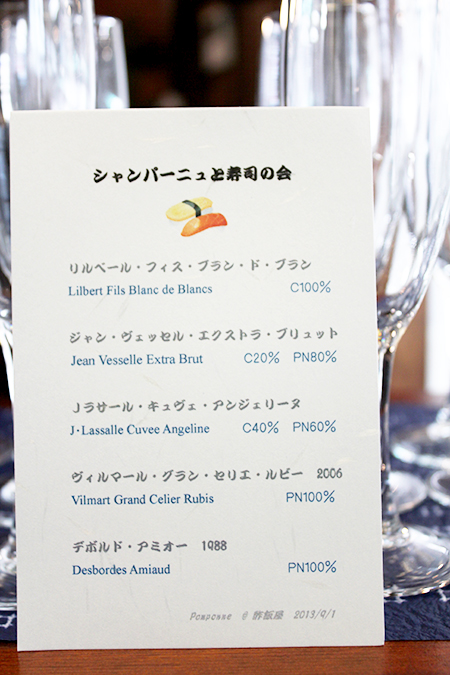 シャンパーニュと寿司の会
リルベール・フィス・ブラン・ド・ブラン
Lilbert Fils Blanc de Blancs C100%
ジャン・ヴェッセル・エクストラ・ブリュット
Jean Vesselle Extra Brut C20% PN80%
Jラサール・キュヴェ・アンジェリーヌ
J・Lassalle Cuvee Angeline C40% PN60%
ヴィルマール・グラン・セリエ・ルビー 2006
Vilmart Grand Celier Rubis PN100%
デボルド・アミオー 1988
Desbordes Amiaud PN100%
@ 酢飯屋 2013/9/1